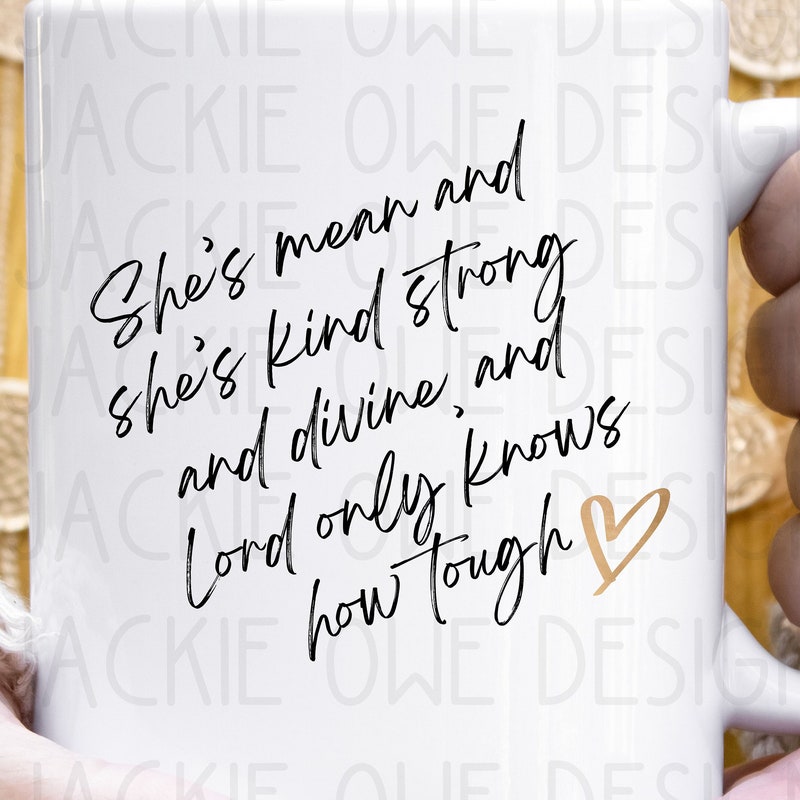 JACKIE OWE DESIGN
JACKIE OWE DESIGN
JACKIE OWE DESIGN
JACKIE OWE DESIGN
JACKIE OWE DESIGN
JACKIE OWE DESIGN
JACKIE OWE DESIGN
She's mean and
she's kind strong
and divine, and
Lord only knows
how tough